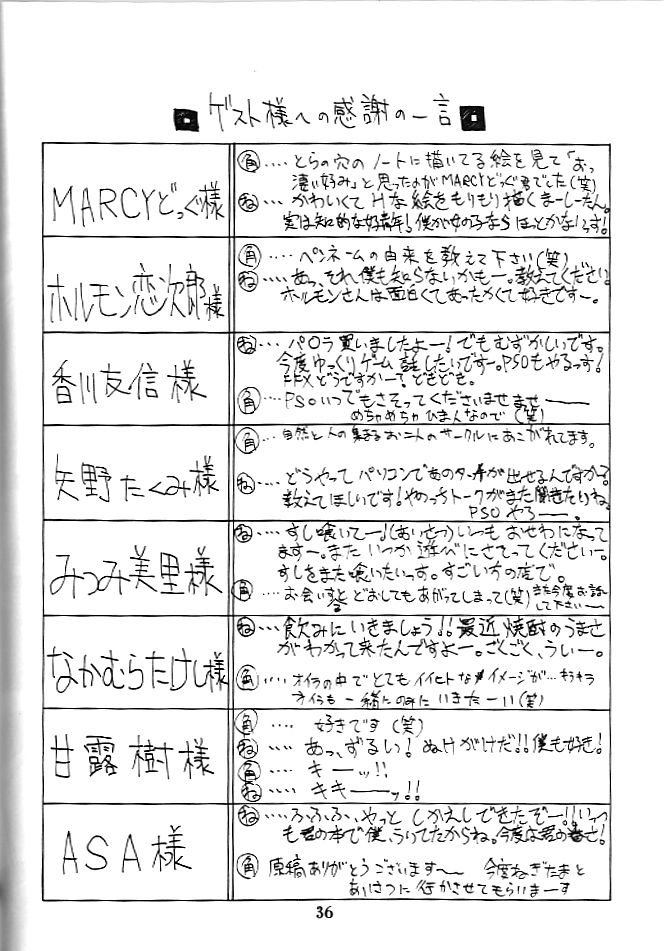 ゲスト様への感謝の一言
MARCYどっぐ様
角‥‥とらの穴のノートに描いてる絵を見て「おっ
凄い好み」と思ったのがMARCYどっぐ君でした(笑)
ね‥‥かわいくてHな絵をもりもり描くまーしーたん。
実は知的な好青年!僕が女の子ならほっとかないっす!
ホルモン恋次郎様
角‥‥ペンネームの由来を教えて下さい(笑)
ね‥‥あっ、それ僕も知らないかもー。教えてください。
ホルモンさんは面白くてあったかくて好きですー。
香川友信様
ね‥‥パロラ買いましたよー!でもむずかしいです。
今度ゆっくりゲーム話したいですー。PSOもやるっす!
FFXどうですかー?ども ども。
角‥‥PSOいつでもさそってくださいませませ――
めちゃめちゃひまんなので(笑)
矢野たくみ様
角‥‥自然と人の集まるお二人のサークルにあこがれてます。
ね‥‥どうやってパソコンであのタッチが出せるんですか?
教えてほしいです!やのっちトークがまた聞きたいね。
PSOやろ――。
みつみ美里様
ね‥‥すし喰いてー!(あいさつ)いつもおせわになって
ますー。またいつか遊びにさそってくださいー。
すしをまた喰いたいっす。すごい方の店で。
角‥‥お会いすると どおしてもあがってしまって(笑)また今度お話
して下さい――
なかむらたけし様
ね‥‥飲みにいきましょう!!最近焼酎のうまさ
がわかって来たんですよー。ごくごく、うぃー。
角‥‥オイラの中でとてもイイヒトなイメージが…キラキラ
オイラも一緒にのみにいきたーい(笑)
甘露樹様
角‥‥好きです(笑)
ね‥‥あっ、ずるい!ぬけがけだ!!僕も好き!
角‥‥キーッ!!
ね‥‥キキーーッ!!
ASA様
ね‥‥ふふふふ、やっとしかえしできたぞー!!いっつ
も君の本で僕、うりてたからね。今度は君の番さ!
角 原稿ありがとうございます――― 今度ねぎたまと
あいさつに行かさせてもらいまーす
36